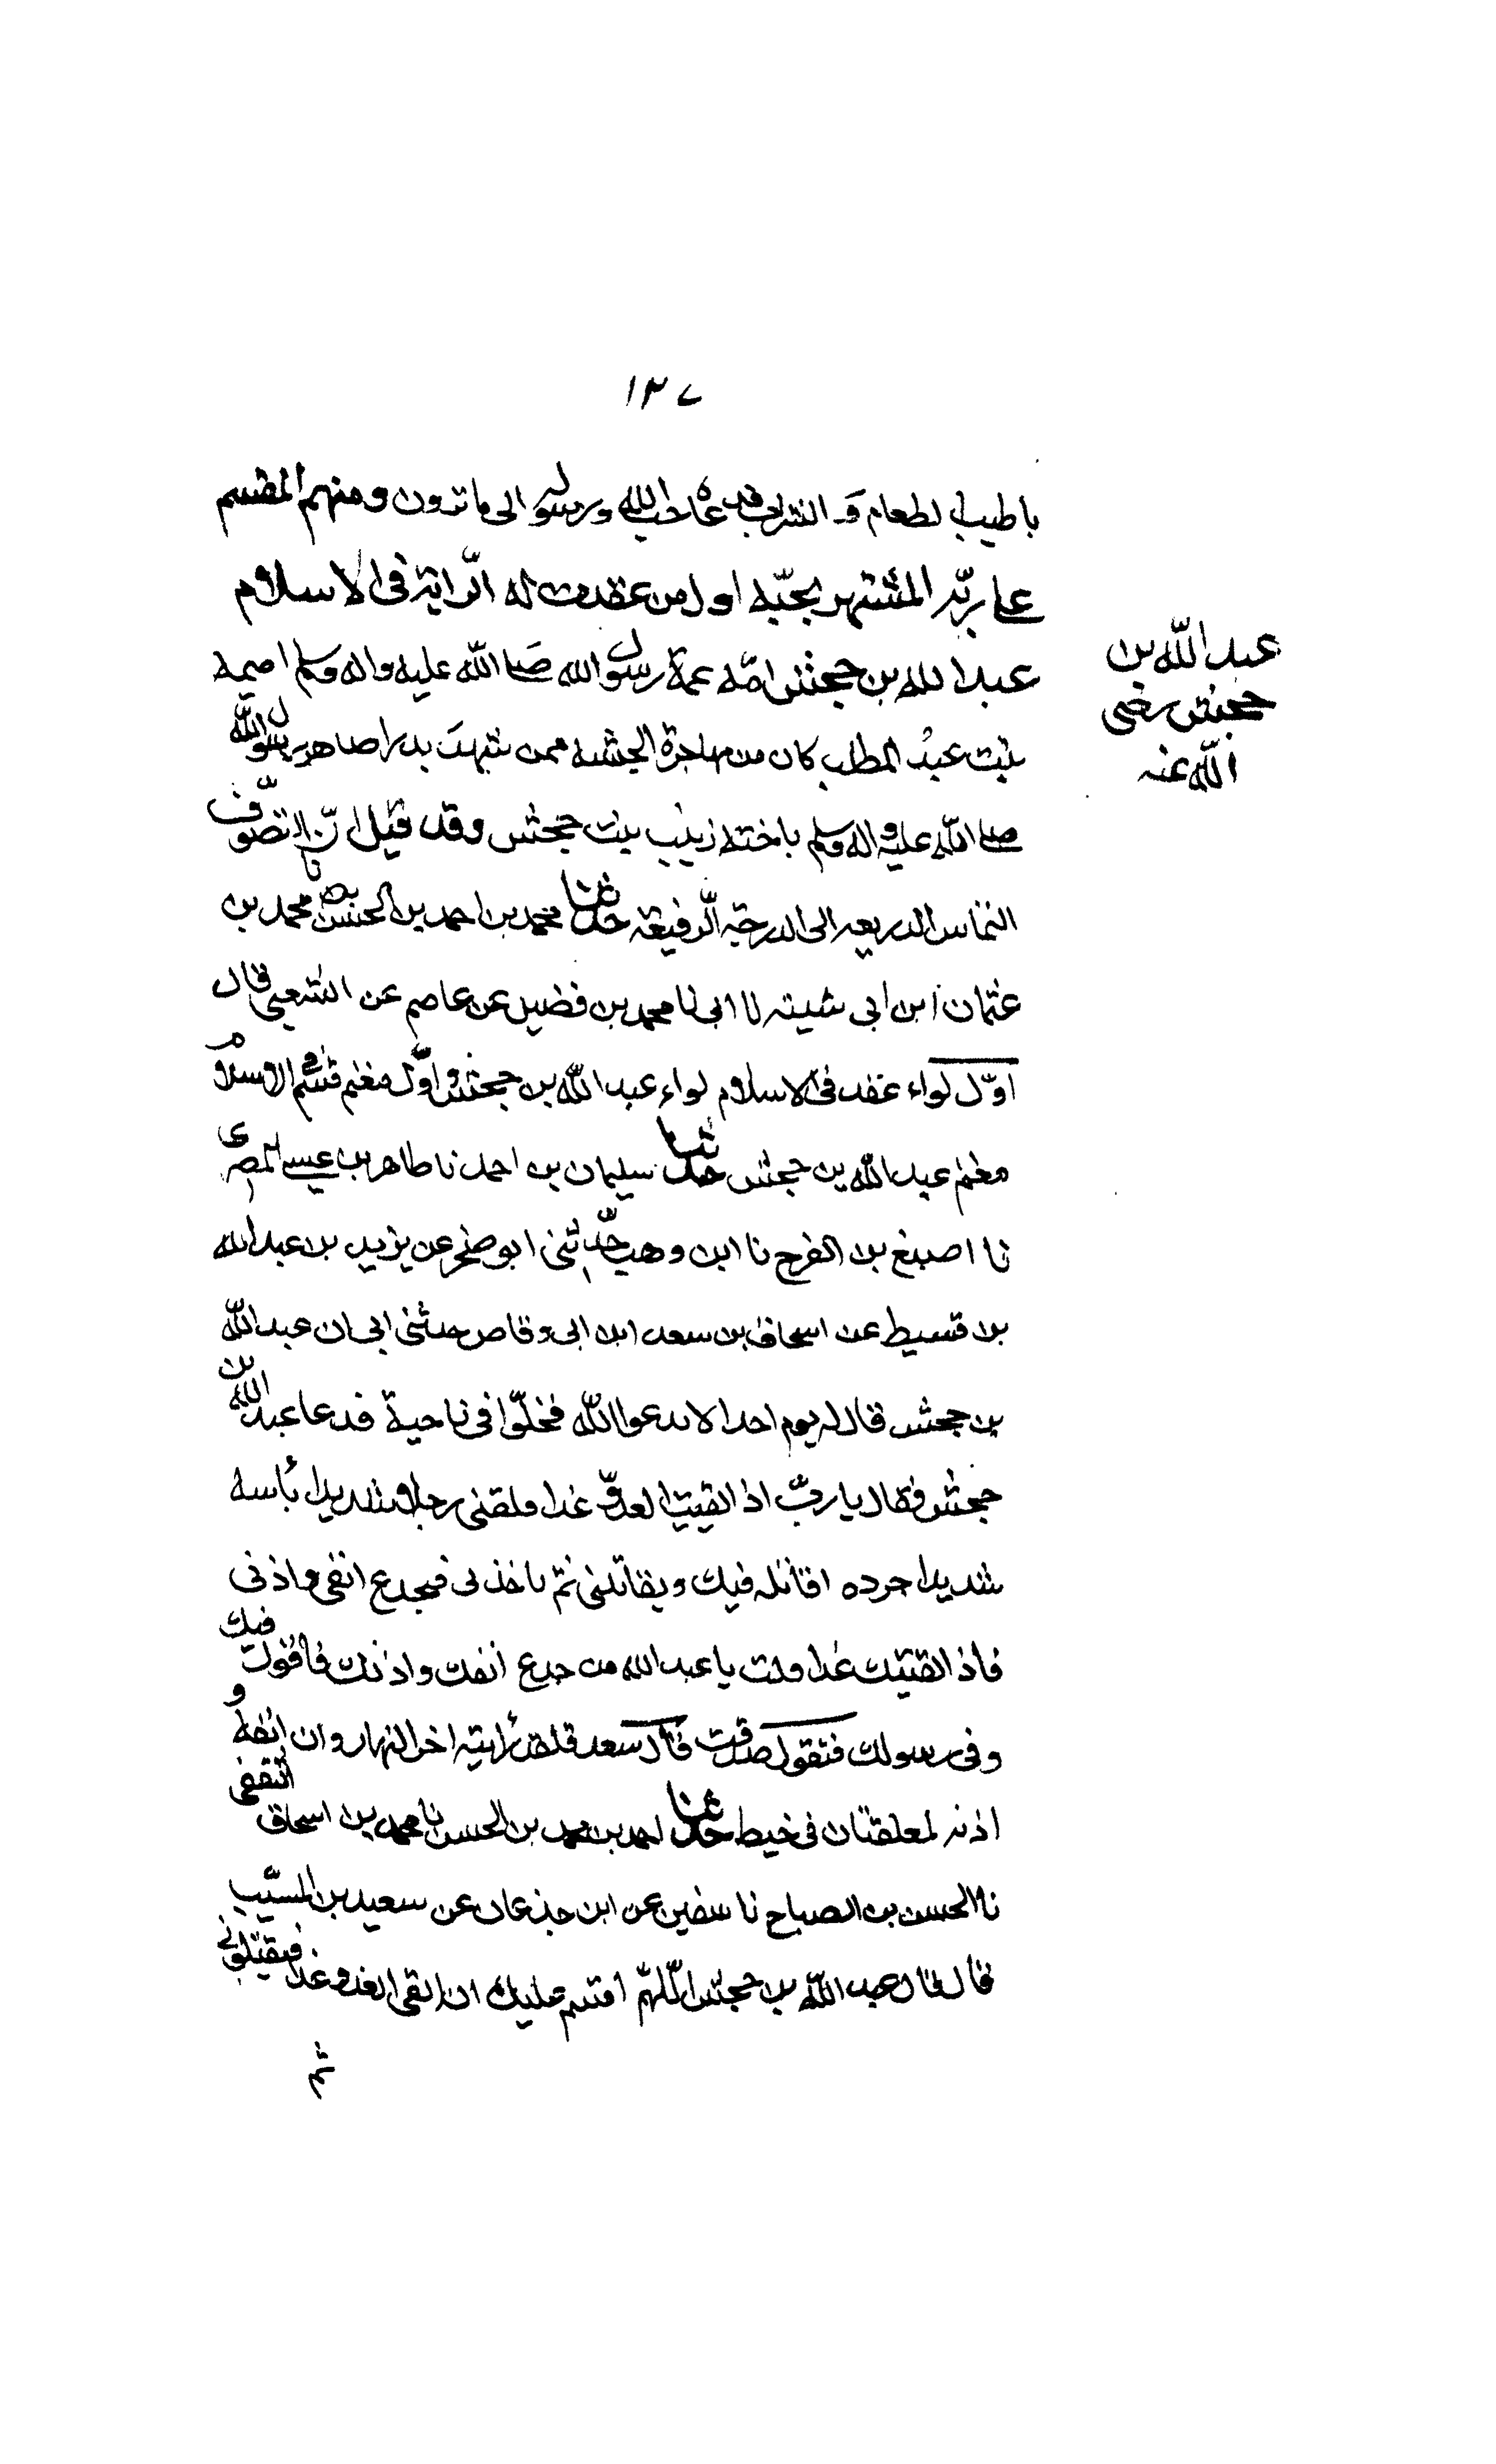 ١٣٧
باطيب الطعام و الشراب قد دعاه حب الله ورسوله الى ما ترون ومنهم المقسم
على ربّه المشتهر بحبّه اول من عقدت له الرّاية فى الاسلام
عبد الله بن جحش امّه عمة رسول الله صلى الله عليه واله وسلم اميمة
عبد الله بن
جحش رضى
الله عنه
بنت عبد المطلب كان من مهاجرة الحبشة ممن شهد بدرا صاهر رسول الله
صلى الله عليه واله وسلم باخته زينب بنت جحش وقد قيل انّ التصوّف
التماس الذريعه الى الدرجة الرّفيعة حدثنا محمد بن احمد بن الحسن نا محمد بن
عثمان ابن ابى شيبة نا ابى نا محمد بن فضيل عن عاصم عن الشعبى قال
اوّل لواء عقد فى الاسلام لواء عبد الله بن جحش واوّل مغنم قسم فى الاسلام
مغنم عبد الله بن جحش حدثنا سليمان بن احمد نا طاهر بن عيسى المصرى
نا اصبغ بن الفرج نا ابن وهب حدّثنى ابو صخر عن يزيد بن عبد الله
بن قسيط عن اسحاق بن سعد ابن ابى وقاص حدثنى ابى ان عبد الله
بن جحش قال له يوم احد الا ندعوا الله فخلّوا فى ناحية فدعا عبد الله بن
جحش فقال يا ربّ اذا لقيت العدوّ غدا فلقنى رجلا شديدا بأسه
شديدا حرده اقاتله فيك ويقاتلنى ثم ياخذنى فيجدع انفى واذنى
فاذا لقيتك غدا قلت يا عبد الله من جدع انفك واذنك فاقول فيك
و فى رسولك فتقول صدقت قال سعد فلقد رأيته اخر النهار وان انفه و
اذنه لمعلقتان فى خيط حدثنا احمد بن محمد بن الحسن نا محمد بن اسحاق الثقفى
نا الحسن بن الصباح نا سفين عن ابن جذعان عن سعيد بن المسيّب
قال قال عبد الله بن جحش اللّهمّ اقسم عليك ان القى العدو غدا فيقتلونى
ثم